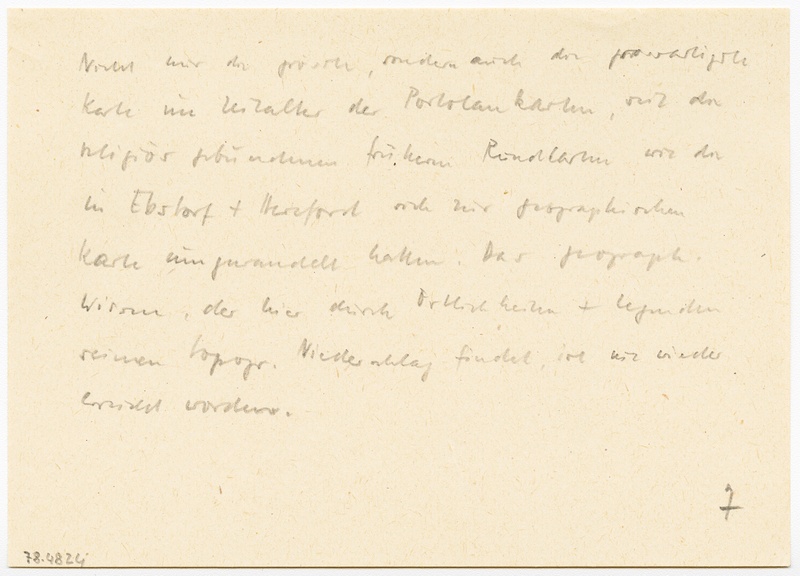 Nicht nur die grösste, sondern auch die grossartigste
Karte im Zeitalter der Portolankarten, seit die
religiös gebundenen früheren Rundkarten wie die
in Ebstorf + Hereford sich zur geographischen
Karte umgewandelt hatten. Das geograph.
Wissen, der hier durch Örtlichkeiten + Legenden
seinen topogr. Niederschlag findet, ist nie wieder
erreicht worden.
7
78.482 4j